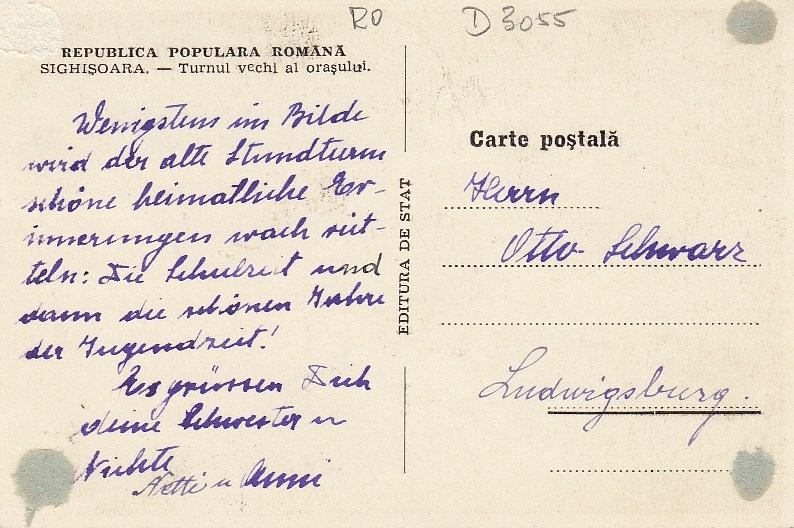 RO D 3055
REPUBLICA POPULARA ROMÂNĂ
SIGHIŞOARA. — Turnul vechi al oraşului.
Wenigstens im Bilde
wird der alte Stundturm
schöne heimatliche Er-
innerungen wach rüt-
teln: Die Schulzeit und
dann die schönen Jahre
der Jugendzeit!
Es grüssen Dich
deine Schwester u
Nichte
Netti u Anni
EDITURA DE STAT
Carte poştală
Herrn
Otto Schwarz
Ludwigsburg.